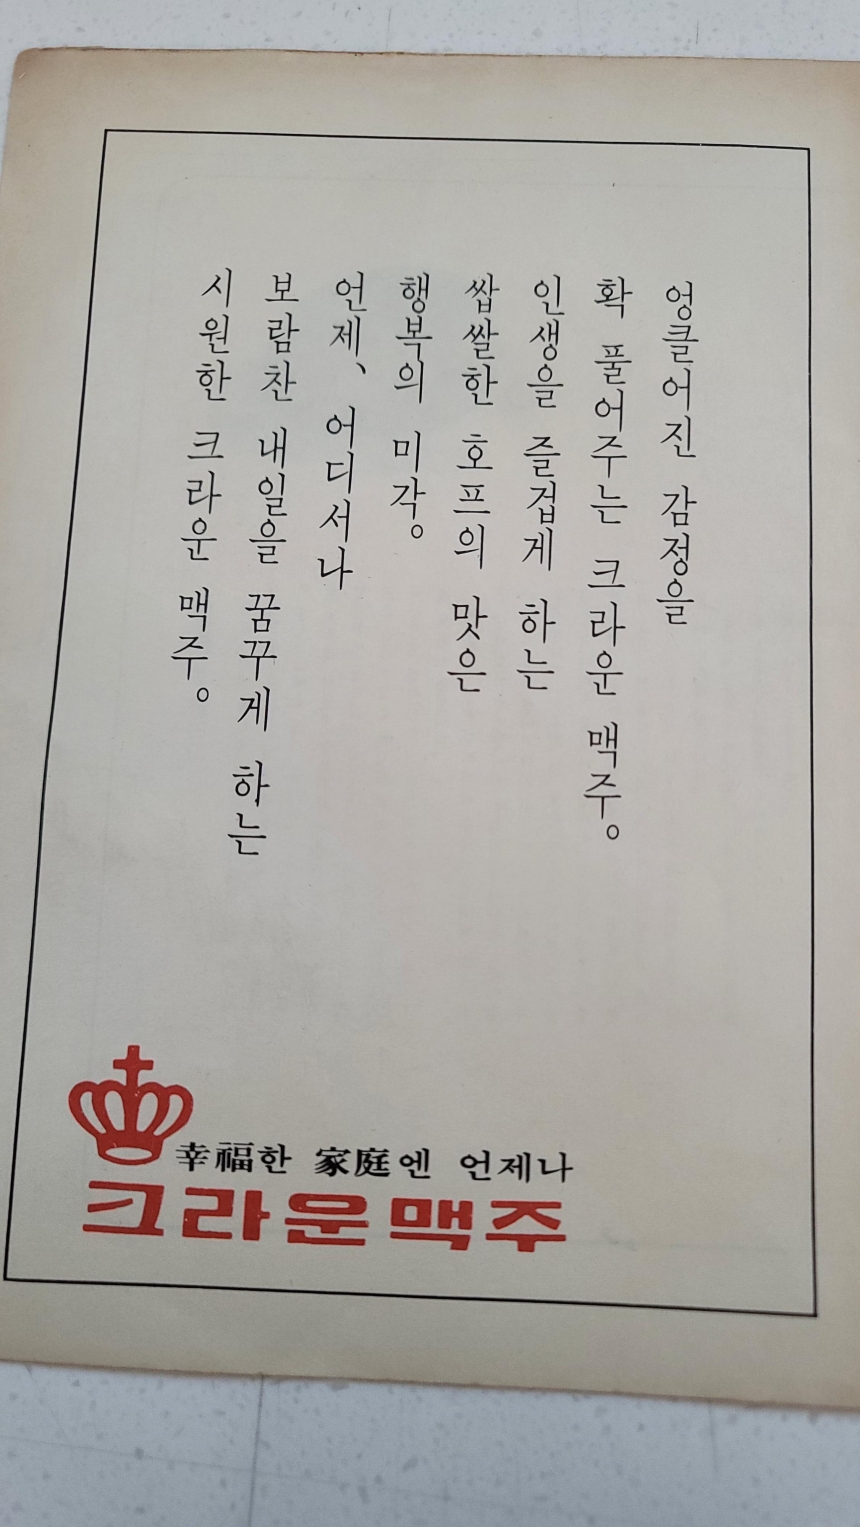 엉클어진 감정을
확 풀어주는 크라운 맥주。
인생을 즐겁게 하는
쌉쌀한 호프의 맛은
행복의 미각。
언제、 어디서나
보람찬 내일을 꿈꾸게 하는
시원한 크라운 맥주。
幸福한 家庭엔 언제나
크라운맥주